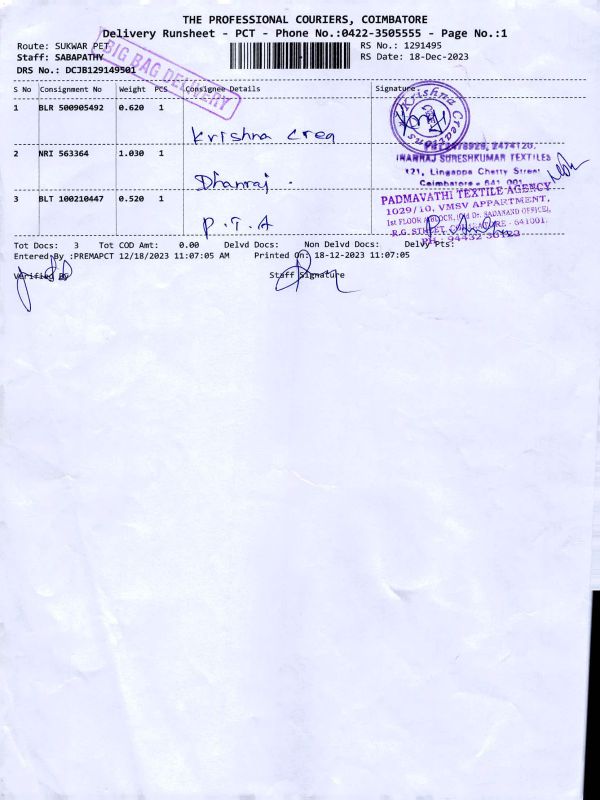 THE PROFESSIONAL COURIERS, COIMBATORE
Delivery Runsheet - PCT - Phone No.:0422-3505555 - Page No.:1
Route: SUKWAR PET
RS No.: 1291495
Staff: SABAPATHY
RS Date: 18-Dec-2023
DRS No.: DCJB129149501
BIG BAG DELIVERY
S No Consignment No Weight PCS Consignee Details Signature
1 BLR 500905492 0.620 1
Krishna Crea
Krishna Creations
2 NRI 563364 1.030 1
Dhanraj .
2474120.
DHANRAJ SURESHKUMAR TEXTILES
121, Lingappa Chetty Street
Coimbatore - 641 001
3 BLT 100210447 0.520 1
P.T.A
PADMAVATHI TEXTILE AGENCY
1029/10, VMSV APPARTMENT,
1st FLOOR
R.G. STREET, COIMBATORE - 641001.
PH : 94432
Tot Docs: 3 Tot COD Amt: 0.00 Delvd Docs: Non Delvd Docs: Delvy Pts:
Entered By :PREMAPCT 12/18/2023 11:07:05 AM Printed On: 18-12-2023 11:07:05
Verified By
Staff Signature